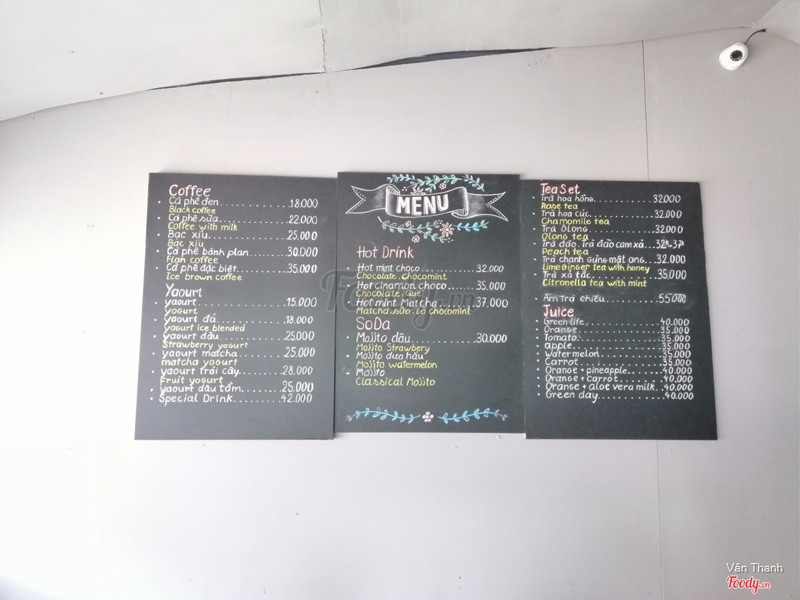 Coffee
Cà phê đen 18.000
Black coffee
Cà phê sữa 22.000
Coffee with milk
Bạc xíu 25.000
Bac xiu
Cà phê bánh plan 30.000
Flan coffee
Cà phê đặc biệt 35.000
Ice brown coffee
Yaourt
yaourt 15.000
yogurt
yaourt đá 18.000
yaourt ice blended
yaourt dâu 25.000
Strawberry yogurt
yaourt matcha 25.000
matcha yogurt
yaourt trái cây 28.000
Fruit yogurt
yaourt dâu tằm 25.000
Special Drink 42.000
MENU
Hot Drink
Hot mint choco 32.000
Chocolate.chocomint
Hot cinamon choco 35.000
Chocolate.Quế
Hot mint Matcha 37.000
Matcha.sữa.lá chocomint
SoDa
Mojito dâu 30.000
Mojito Strawbery
Mojito dưa hấu
Mojito watermelon
Mojito
Classical Mojito
Tea Set
Trà hoa hồng 32.000
Rose tea
Trà hoa cúc 32.000
Chamomile tea
Trà ôlong 32.000
Olong tea
Trà đào. Trà đào cam xả 32k-37k
Peach tea
Trà chanh gừng mật ong 32.000
Lime Ginger tea with honey
Trà xả tắc 35.000
Citronella tea with mint
Ấm trà chiều 55.000
Juice
Green life 40.000
Orange 35.000
Tomato 35.000
apple 35.000
Watermelon 35.000
Carrot 35.000
Orange + pineapple 40.000
Orange + Carrot 40.000
Orange + aloe vera milk 40.000
Green day 40.000
Foody.vn
Vân Thanh
Foody.vn